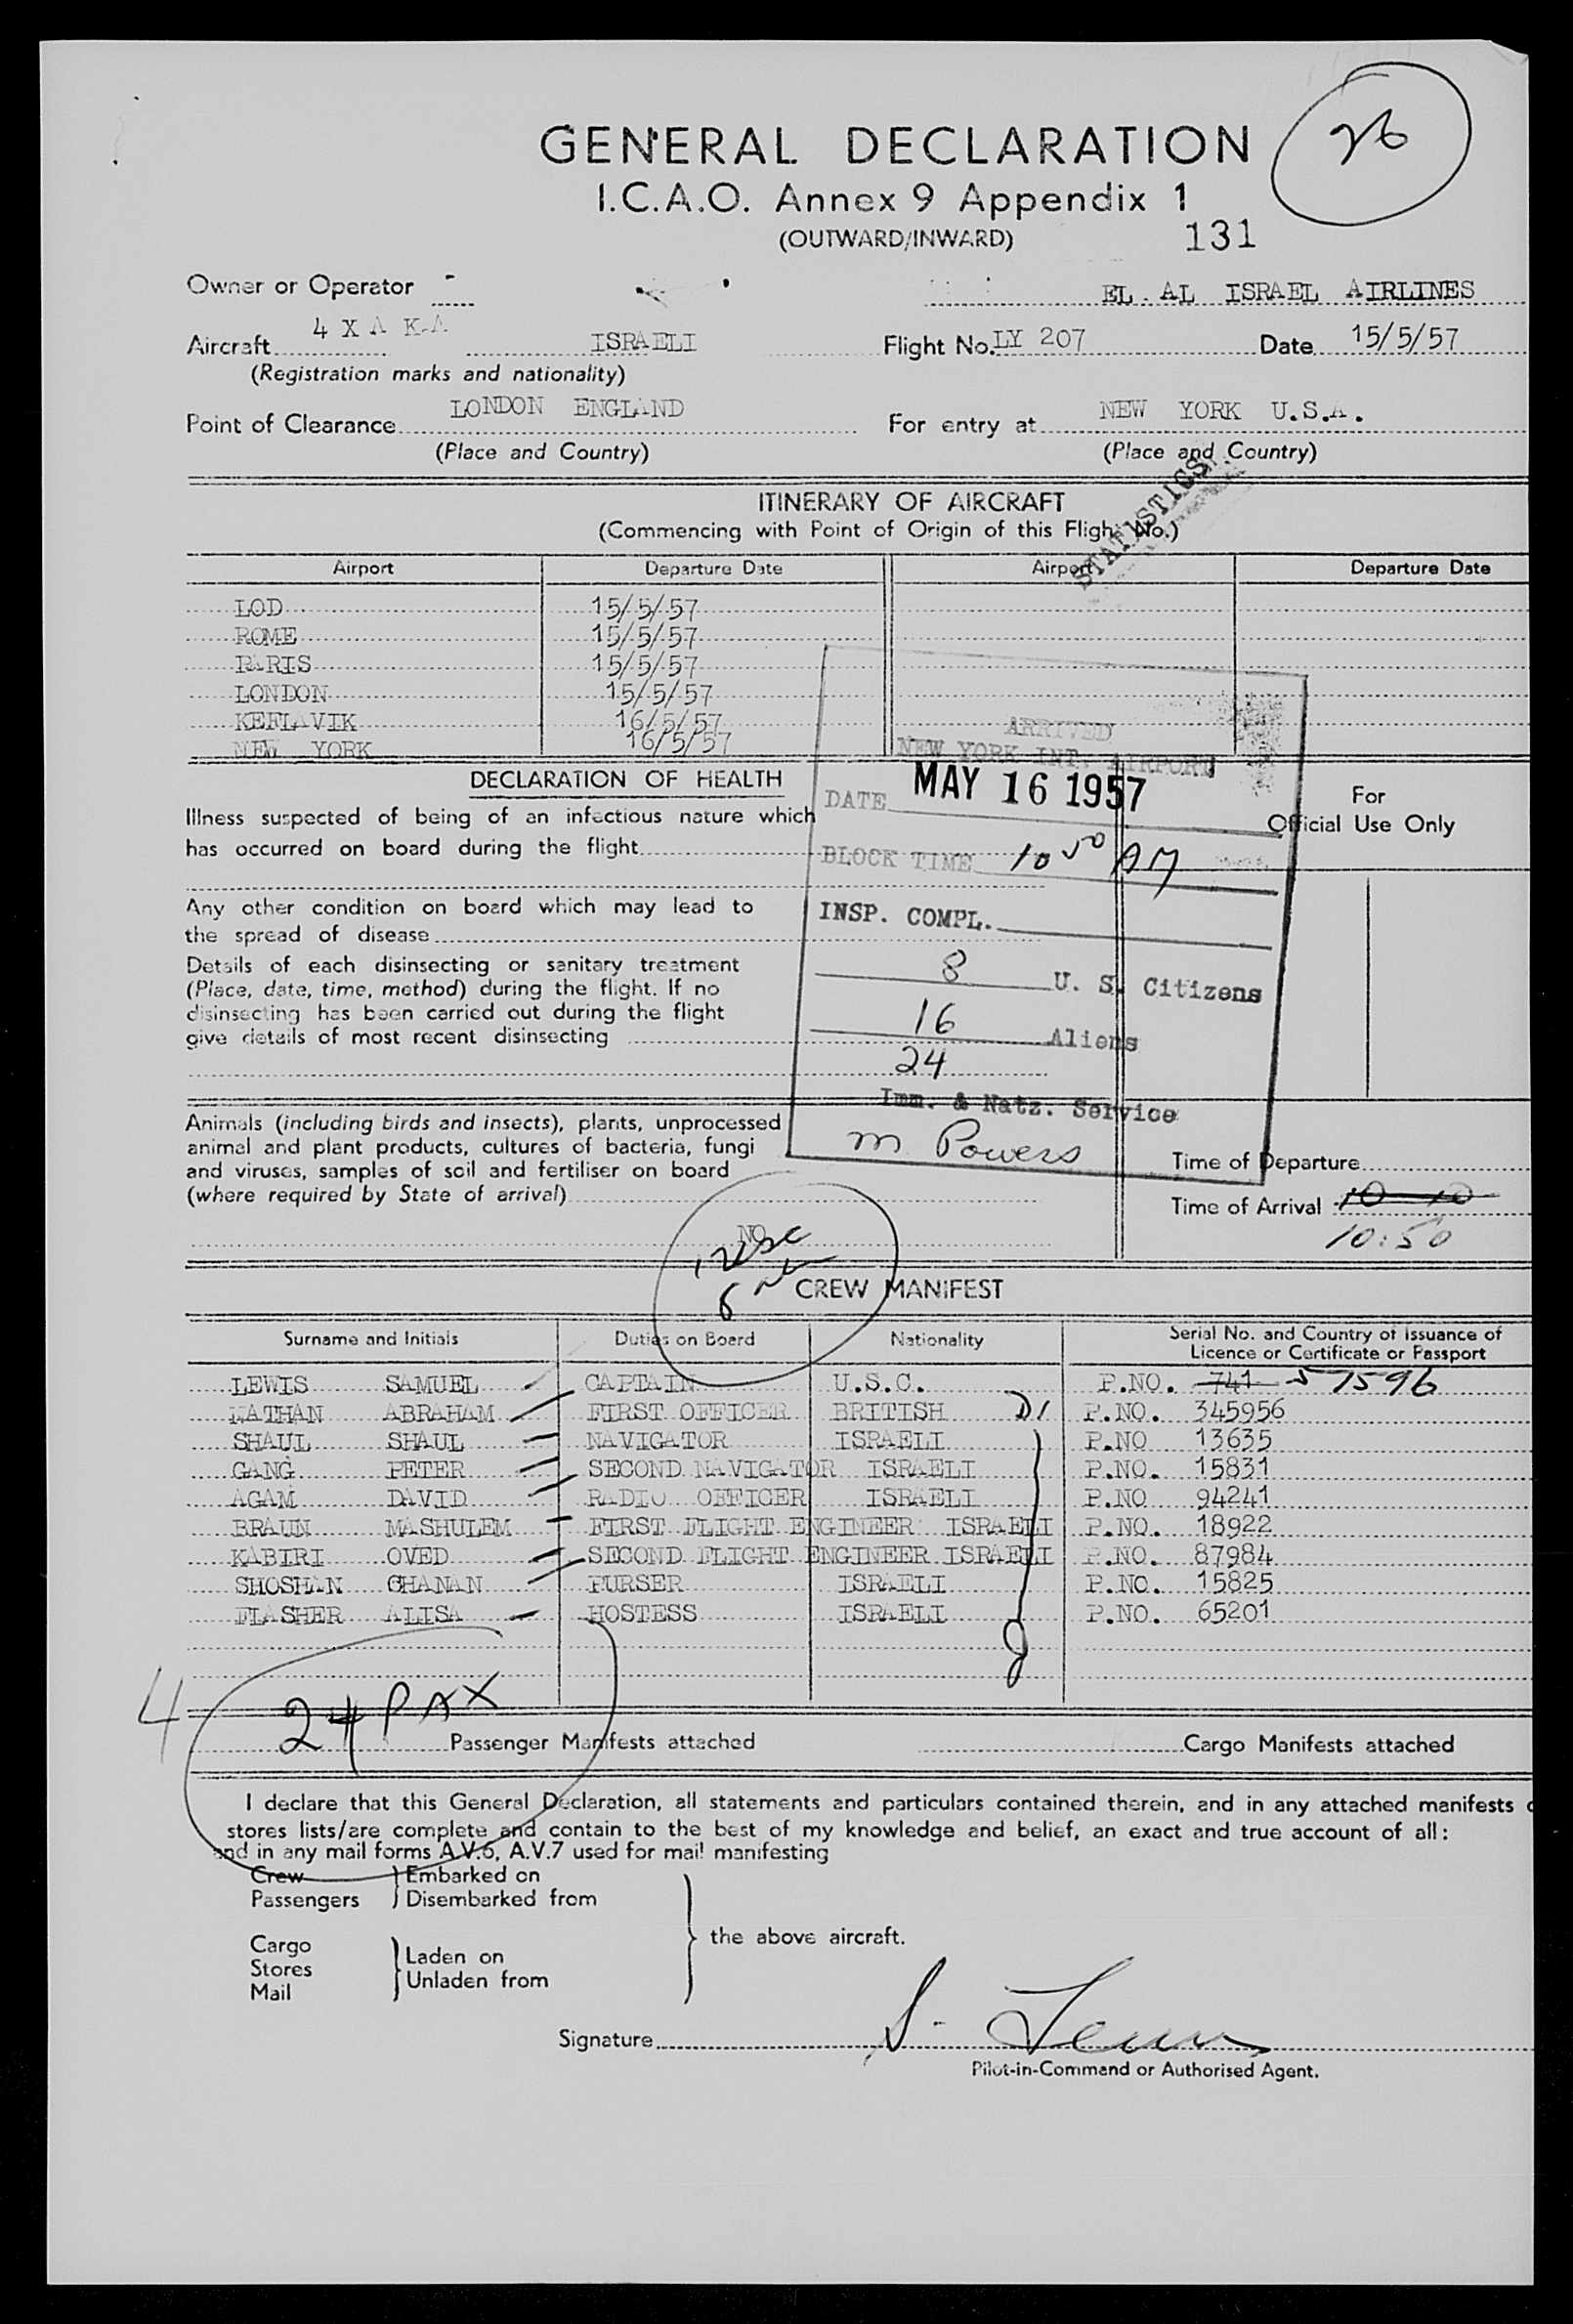 26
GENERAL DECLARATION
I.C.A.O. Annex 9 Appendix 1
(OUTWARD/INWARD) 131
Owner or Operator EL AL ISRAEL AIRLINES
Aircraft 4 X A K A ISRAELI Flight No. LY 207 Date 15/5/57
(Registration marks and nationality)
Point of Clearance LONDON ENGLAND For entry at NEW YORK U.S.A.
(Place and Country) (Place and Country)
STATISTICS
ITINERARY OF AIRCRAFT
(Commencing with Point of Origin of this Flight No.)
Airport Departure Date Airport Departure Date
LOD 15/5/57
ROME 15/5/57
PARIS 15/5/57
LONDON 15/5/57
KEFLAVIK 16/5/57
NEW YORK 16/5/57
ARRIVED
NEW YORK INT. AIRPORT
DATE MAY 16 1957
BLOCK TIME 10 50 AM
INSP. COMPL.
8 U. S. Citizens
16 Aliens
24
Imm. & Natz. Service
M Powers
DECLARATION OF HEALTH
For
Official Use Only
Illness suspected of being of an infectious nature which
has occurred on board during the flight
Any other condition on board which may lead to
the spread of disease
Details of each disinsecting or sanitary treatment
(Place, date, time, method) during the flight. If no
disinsecting has been carried out during the flight
give details of most recent disinsecting
Animals (including birds and insects), plants, unprocessed
animal and plant products, cultures of bacteria, fungi
and viruses, samples of soil and fertiliser on board
(where required by State of arrival)
NO
Time of Departure
Time of Arrival 10 10
10:50
1 USC
8
CREW MANIFEST
Surname and Initials Duties on Board Nationality Serial No. and Country of Issuance of
Licence or Certificate or Passport
LEWIS SAMUEL CAPTAIN U.S.C. P.NO. 741 57596
NATHAN ABRAHAM FIRST OFFICER BRITISH D1 P.NO. 345956
SHAUL SHAUL NAVIGATOR ISRAELI P.NO 13635
GANG PETER SECOND NAVIGATOR ISRAELI P.NO. 15831
AGAM DAVID RADIO OFFICER ISRAELI P.NO 94241
BRAUN MASHULEM FIRST FLIGHT ENGINEER ISRAELI P.NO. 18922
KABIRI OVED SECOND FLIGHT ENGINEER ISRAELI P.NO. 87984
SHOSHAN CHANAN PURSER ISRAELI P.NO. 15825
FLASHER ALISA HOSTESS ISRAELI P.NO. 65201
4
24 PAX
Passenger Manifests attached Cargo Manifests attached
I declare that this General Declaration, all statements and particulars contained therein, and in any attached manifests
stores lists/are complete and contain to the best of my knowledge and belief, an exact and true account of all:
and in any mail forms A.V.6, A.V.7 used for mail manifesting
Crew Embarked on
Passengers Disembarked from
the above aircraft.
Cargo
Stores Laden on
Mail Unladen from
Signature S. Lewis
Pilot-in-Command or Authorised Agent.